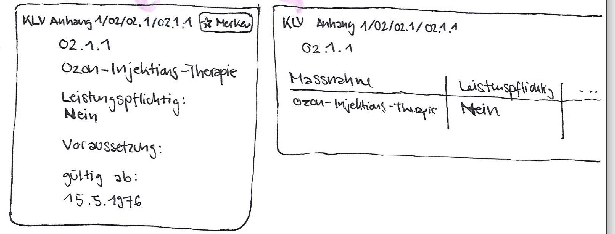 KLV Anhang 1/02/02.1/02.1.1 ☆ Merken
02.1.1
Ozon-Injektions-Therapie
Leistungspflichtig:
Nein
Voraussetzung:
gültig ab:
15.5.1976
KLV Anhang 1/02/02.1/02.1.1
02.1.1
Massnahme Leistungspflichtig ...
Ozon-Injektions-Therapie Nein